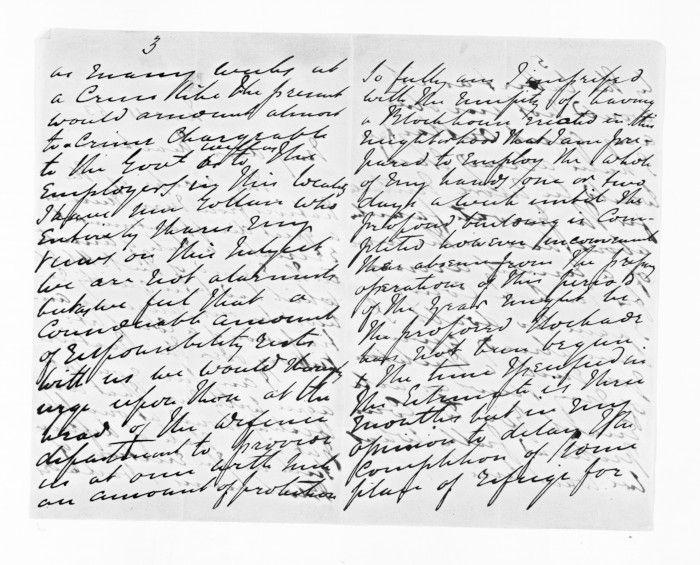 3
as many weeks at
a Crisis like the present
would amount almost
to a Crime Chargeable
to the Govt as well as to the
Employers in this locality
I have seen Colluw who
Entirely shares my
views on this subject
we are not alarmists
but as we feel that a
Considerable amount
of responsibility rests
with us we would
urge upon those at the
head of the defence
department to provide
us at once with such
an amount of protection
So fully am I impressed
with the necessity of having
a Blockhouse Erected in this
neighborhood that I am pre-
pared to Employ the whole
of my hands one or two
days a week until the
proposed building is Com-
pleted however inconvenient
their absence from the
operations at this period
of the year might be
The proposed Stockade
has not been begun
The time specified in
the Estimate is three
Months but in my
opinion to delay the
Completion of some
place of refuge for